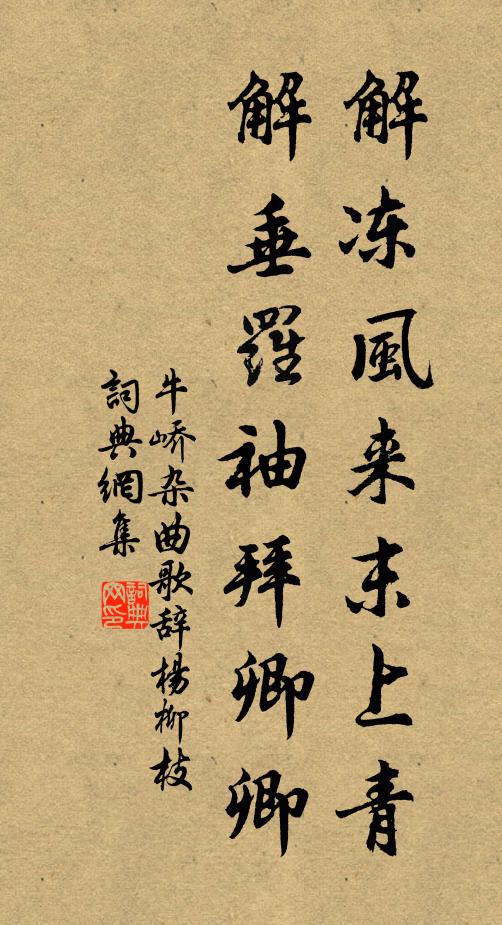 解冻風来末上青
解垂羅袖拜卿卿
牛嶠杂曲歌辞楊柳枝
詞典網集
詞典网印